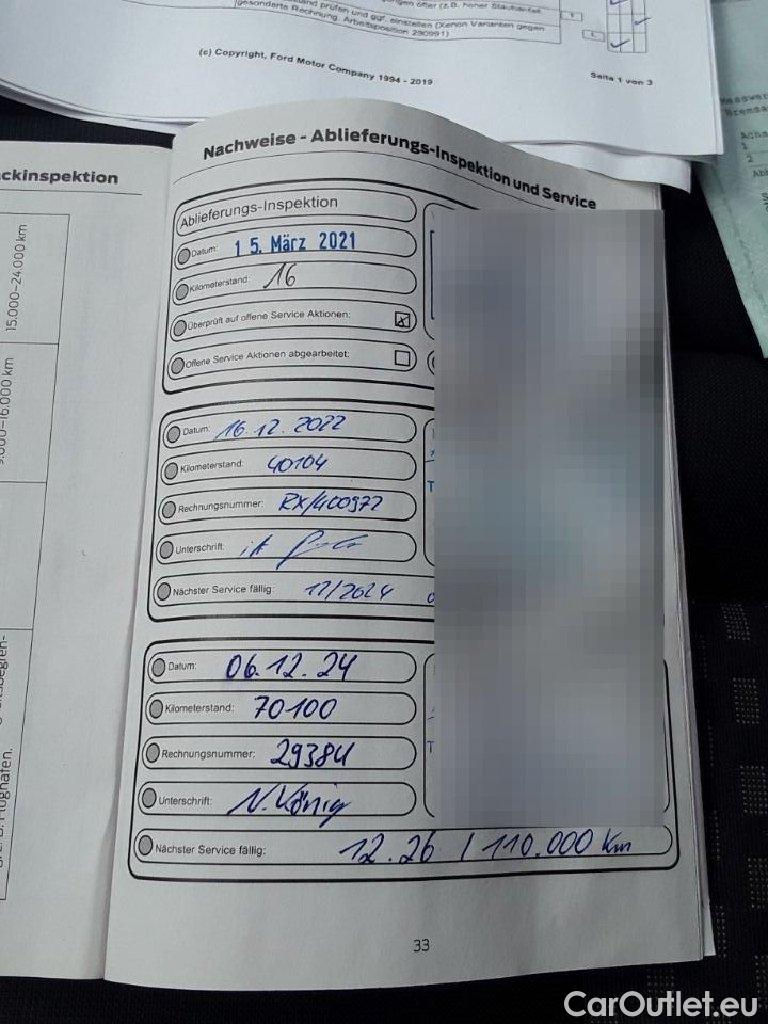 gesonderte Rechnung, Arbeitsposition 290991)
(c) Copyright, Ford Motor Company 1994 - 2019
Seite 1 von 3
ckinspektion
15.000–24.000 km
Nachweise - Ablieferungs-Inspektion und Service
Ablieferungs-Inspektion
Datum: 15. März 2021
Kilometerstand: 16
Überprüft auf offene Service Aktionen:
Offene Service Aktionen abgearbeitet:
Datum: 16.12.2022
Kilometerstand: 40104
Rechnungsnummer: RX/400972
Unterschrift:
Nächster Service fällig: 12/2024
Datum: 06.12.24
Kilometerstand: 70100
Rechnungsnummer: 29384
Unterschrift: N. König
Nächster Service fällig: 12.26 / 110.000 Km
33
CarOutlet.eu